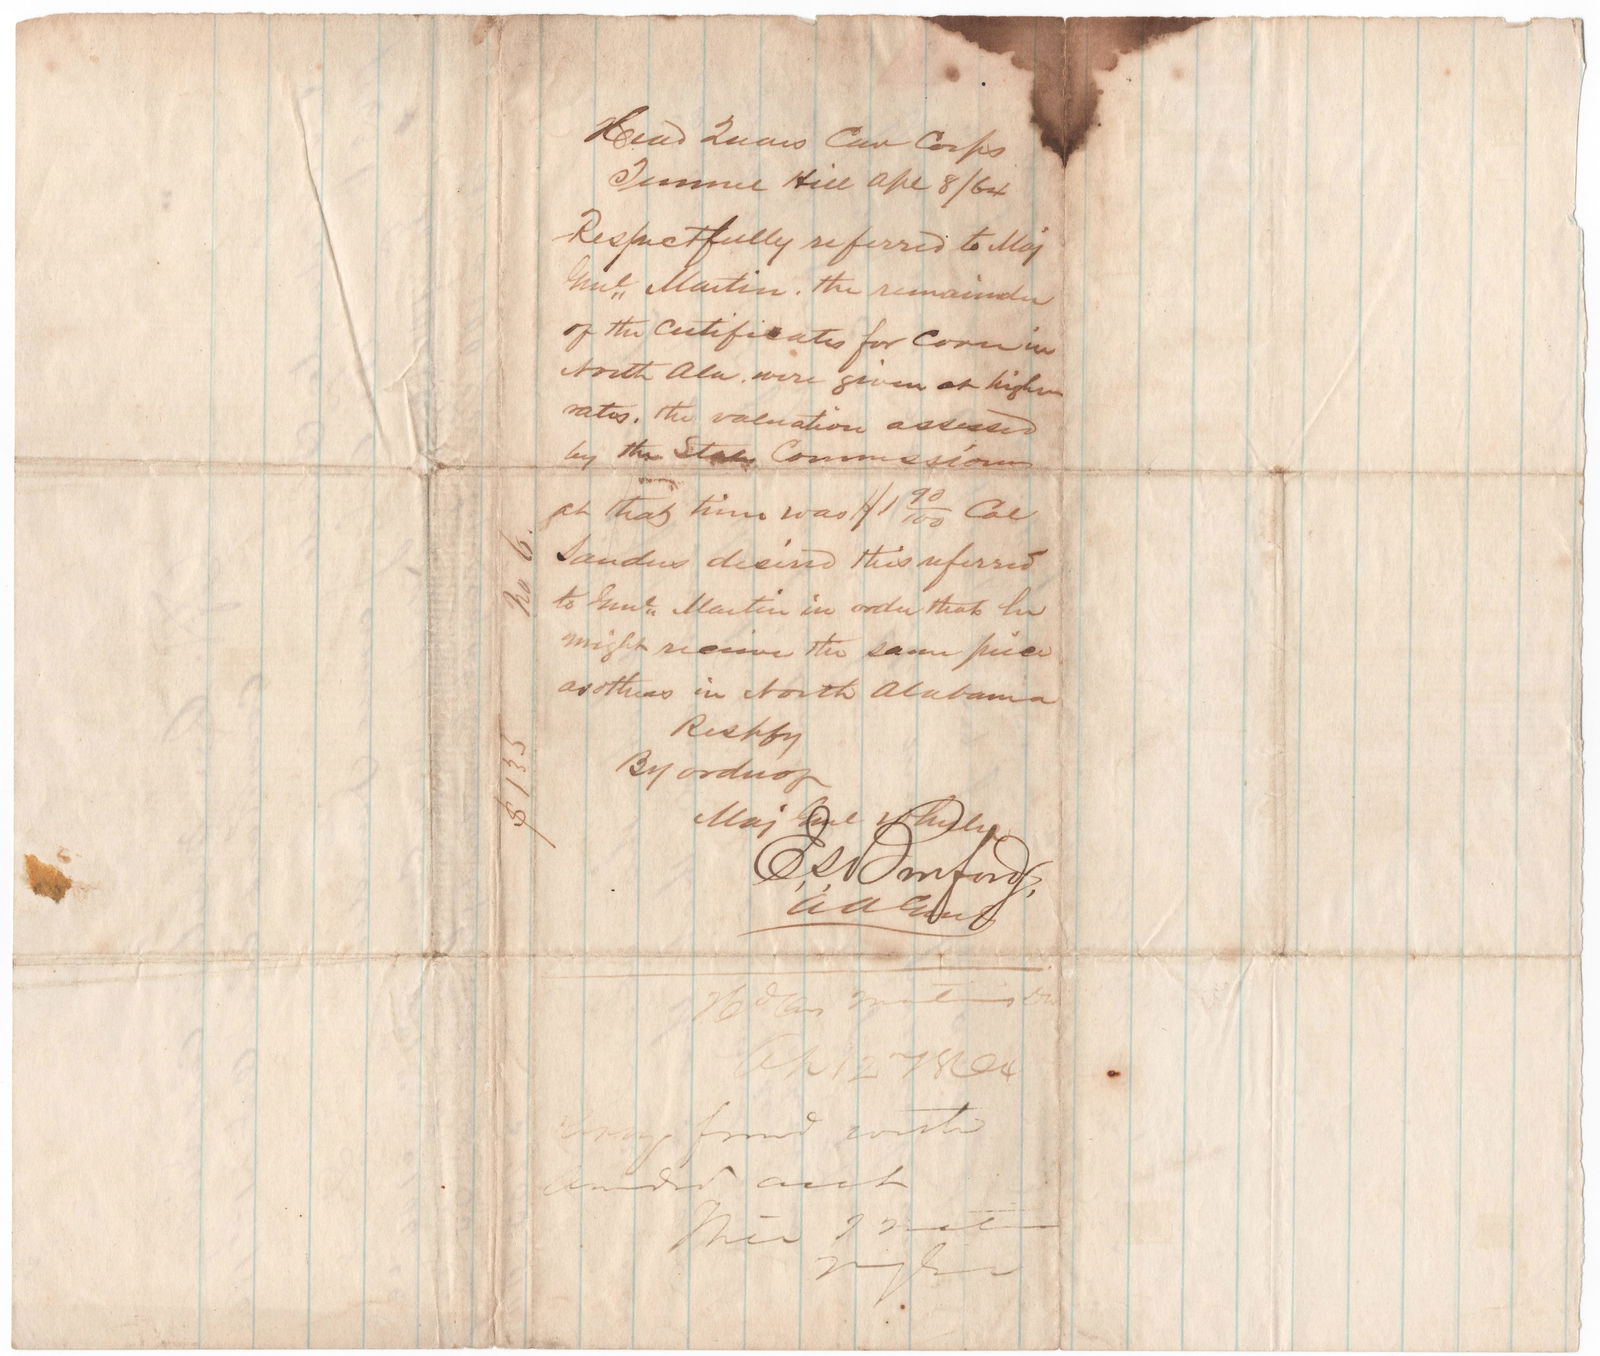 Head Quars Cav Corps
Tunnel Hill Apl 8/64
Respectfully referred to Maj
Genl Martin. the remainder
of the Certificates for Corn in
North Ala. were given at higher
rates. the valuation assessed
by the State Commissioners
at that time was $1 90/100 Col
Sanders desired this referred
to Genl Martin in order that he
might receive the same price
as others in North Alabama
Respfy
By order of
Maj Genl Wheeler
E S Burford
A A Genl
No 6.
$135
Hd Qrs Martins Div
Ap 12 1864
forwd with
amended acct
Martin
Maj Genl